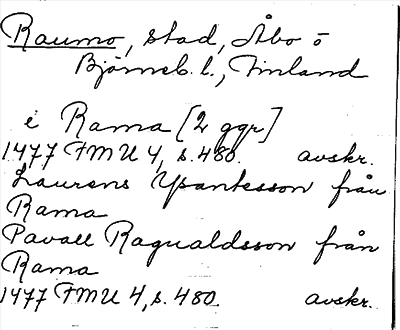 Raumo, stad, Åbo o
Björneb. l., Finland
i Rama [2 ggr]
1477 FMU 4, s. 480. avskr.
Laurens Ysantesson från
Rama
Pavall Ragualdsson från
Rama
1477 FMU 4, s. 480. avskr.